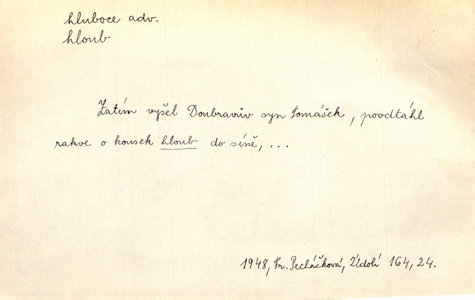 hluboce adv.
hloub
Zatím vyšel Doubravův syn Tomášek, poodtáhl
rakve o kousek hloub do síně, ...
1948, Fr. Pecháčková, Údolí 164, 24.